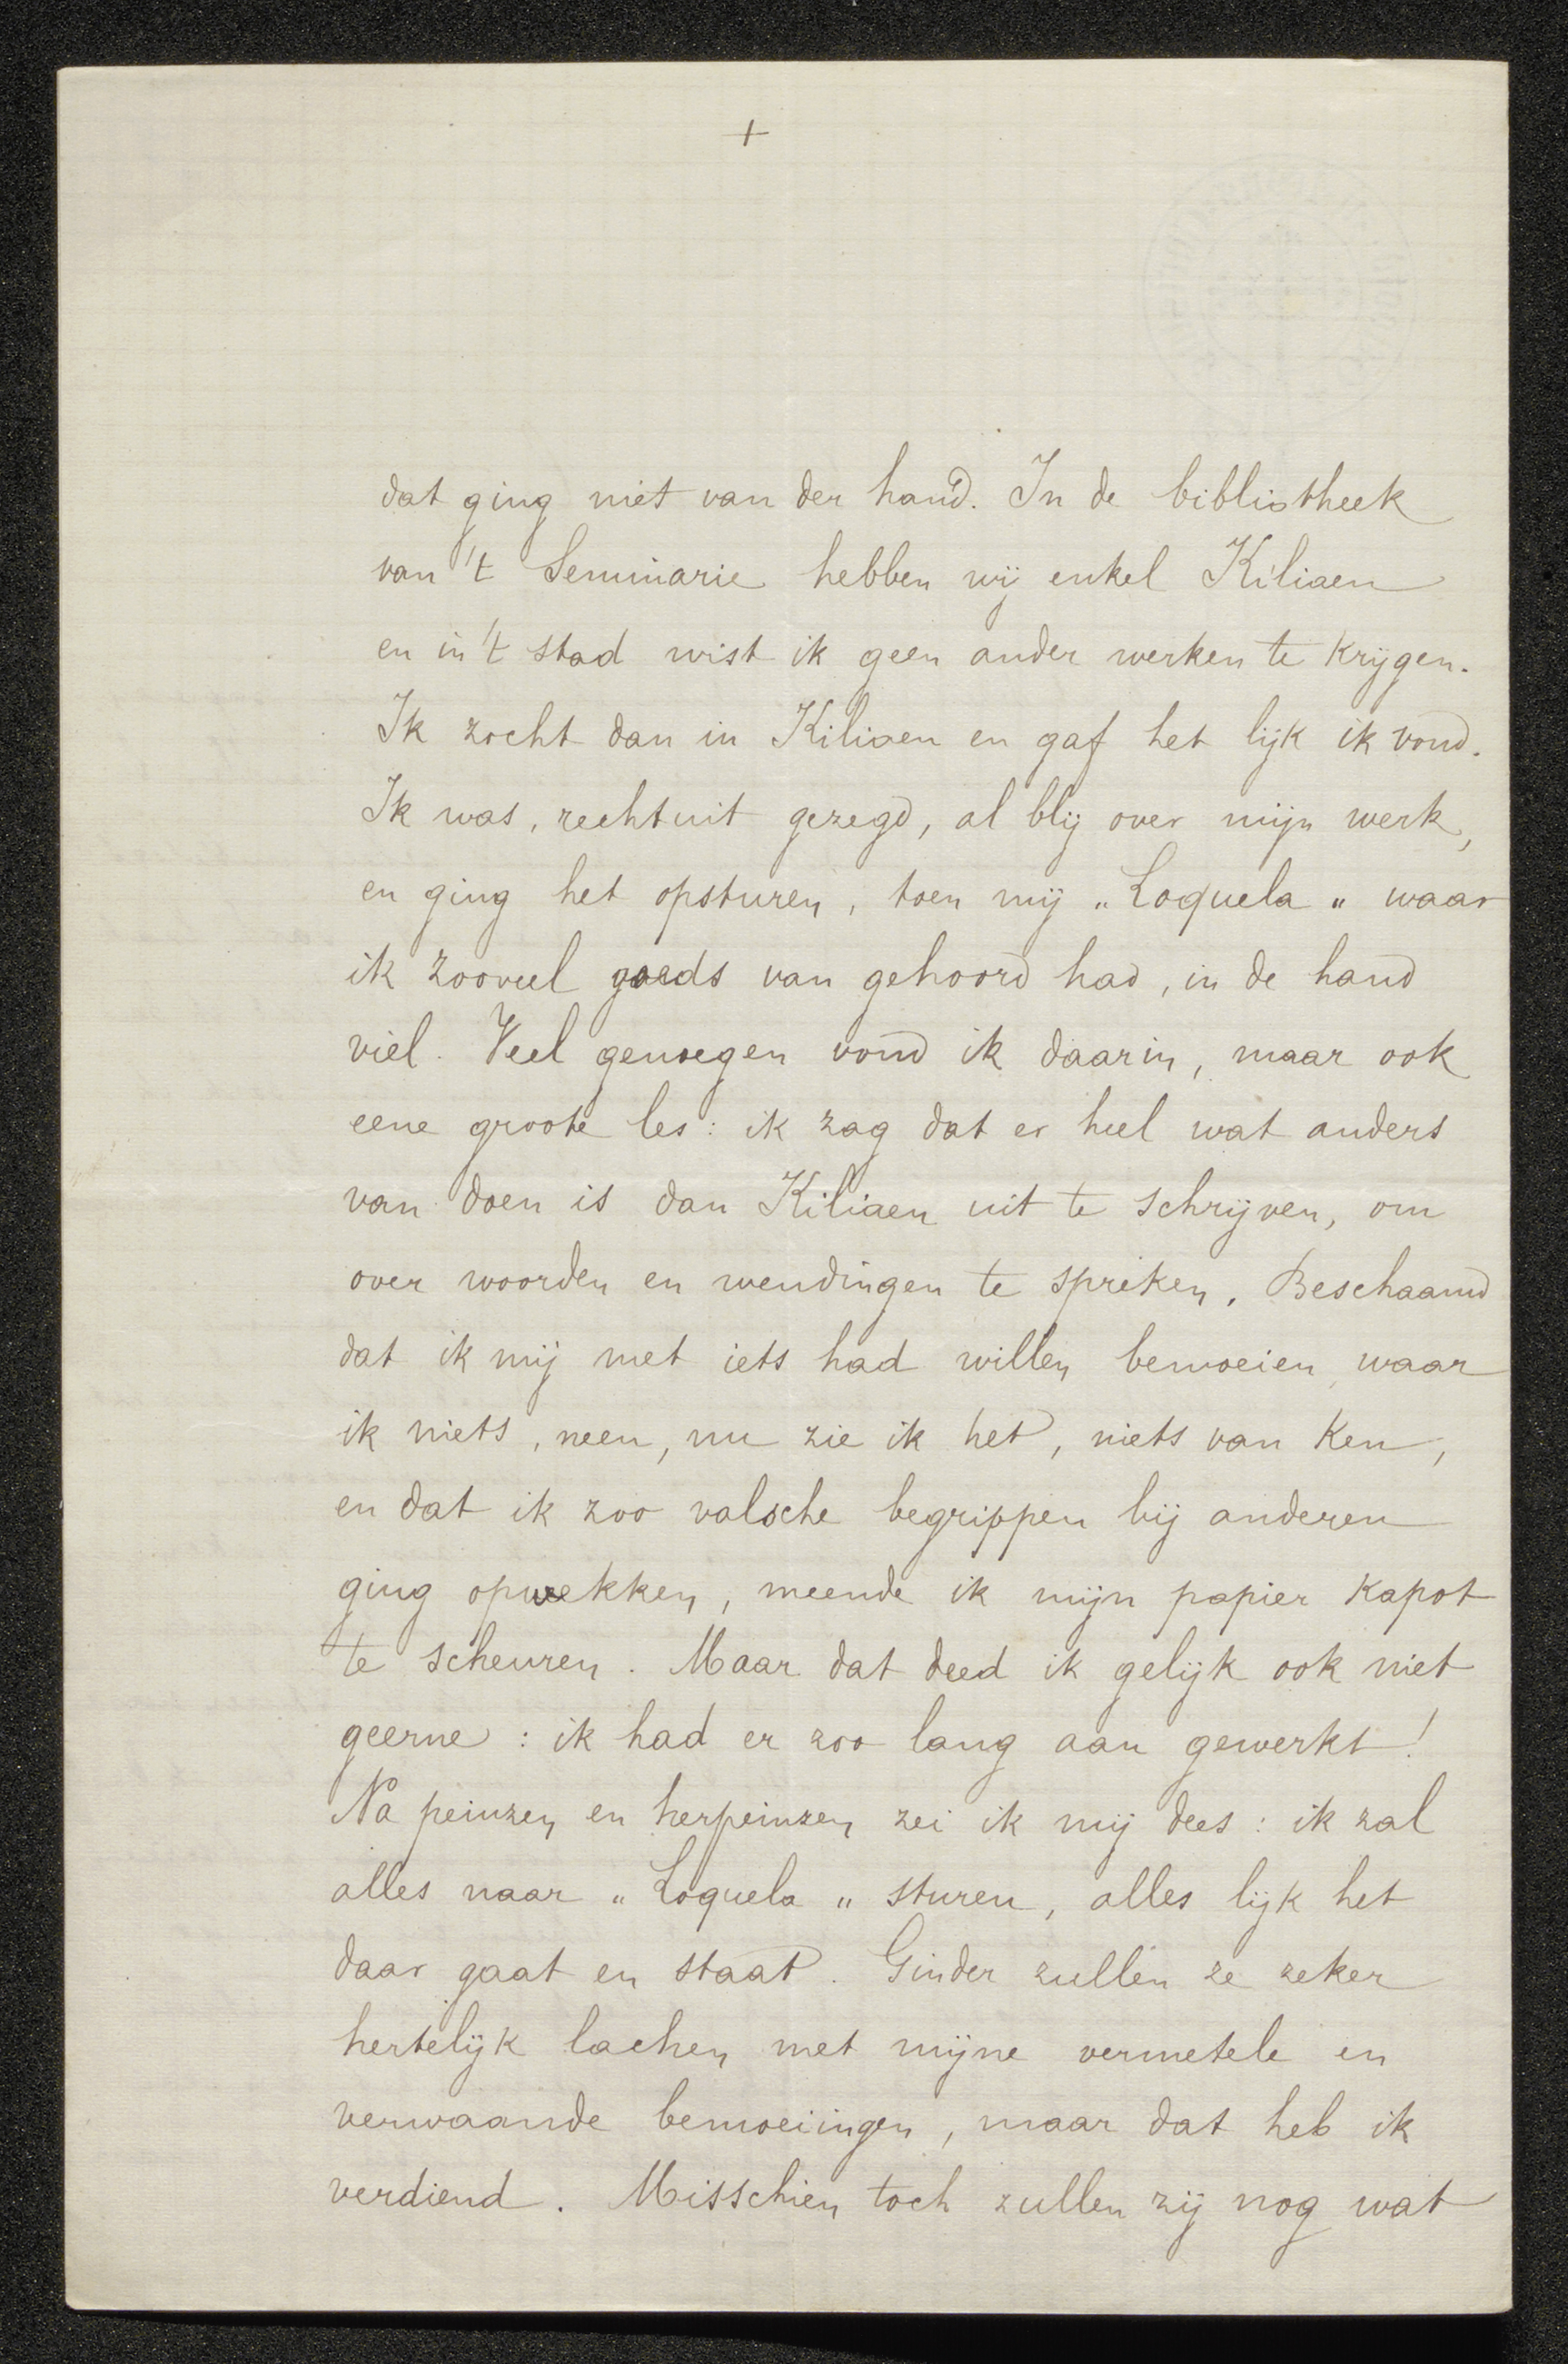 +
dat ging niet van der hand. In de bibliotheek
van 't Seminarie hebben wij enkel Kiliaen
en in 't stad wist ik geen ander werken te krijgen.
Ik zocht dan in Kiliaen en gaf het lijk ik vond.
Ik was, rechtuit gezegd, al blij over mijn werk,
en ging het opsturen, toen mij „Loquela„ waar
ik zooveel goeds van gehoord had, in de hand
viel. Veel genoegen vond ik daarin, maar ook
eene groote les: ik zag dat er heel wat anders
van doen is dan Kiliaen uit te schrijven, om
over woorden en wendingen te spreken. Beschaamd
dat ik mij met iets had willen bemoeien waar
ik niets, neen, nu zie ik het, niets van ken,
en dat ik zoo valsche begrippen bij anderen
ging opwekken, meende ik mijn papier kapot
te scheuren. Maar dat deed ik gelijk ook niet
geerne: ik had er zoo lang aan gewerkt!
Na peinzen en herpeinzen zei ik mij dees: ik zal
alles naar „Loquela„ sturen, alles lijk het
daar gaat en staat. Ginder zullen ze zeker
hertelijk lachen met mijne vermetele en
verwaande bemoeiingen, maar dat heb ik
verdiend. Misschien toch zullen zij nog wat